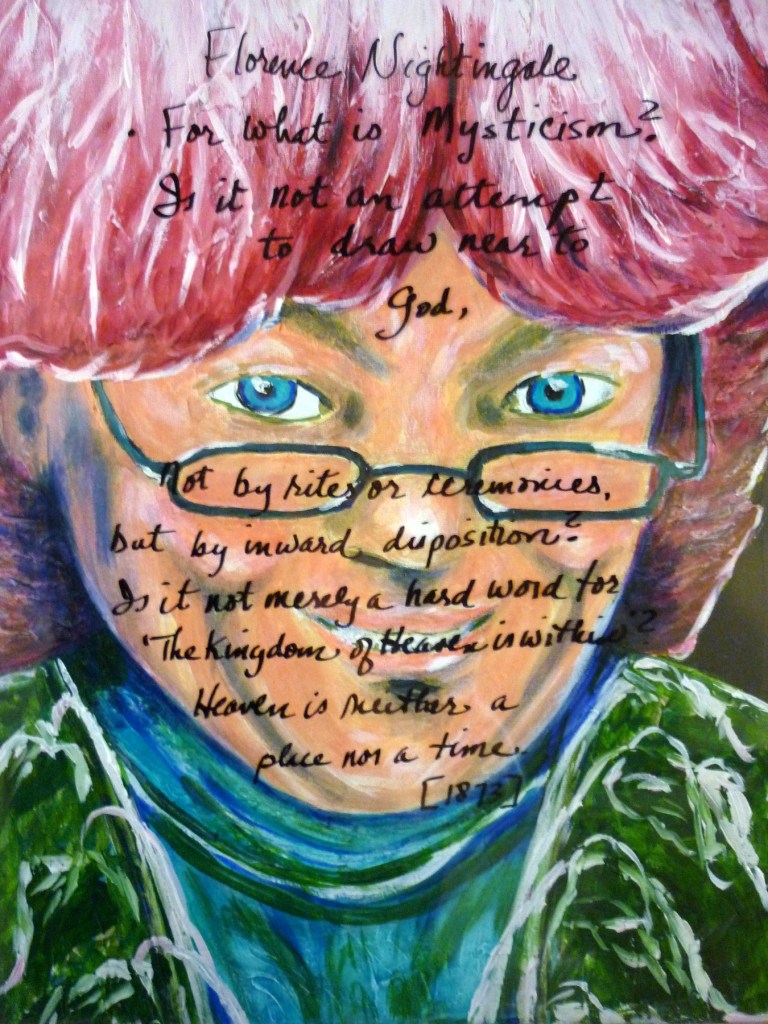 Florence Nightingale
. For what is Mysticism?
Is it not an attempt
to draw near to
God,
Not by rites or ceremonies,
but by inward disposition?
Is it not merely a hard word for
'The Kingdom of Heaven is within'?
Heaven is neither a
place nor a time.
[1873]